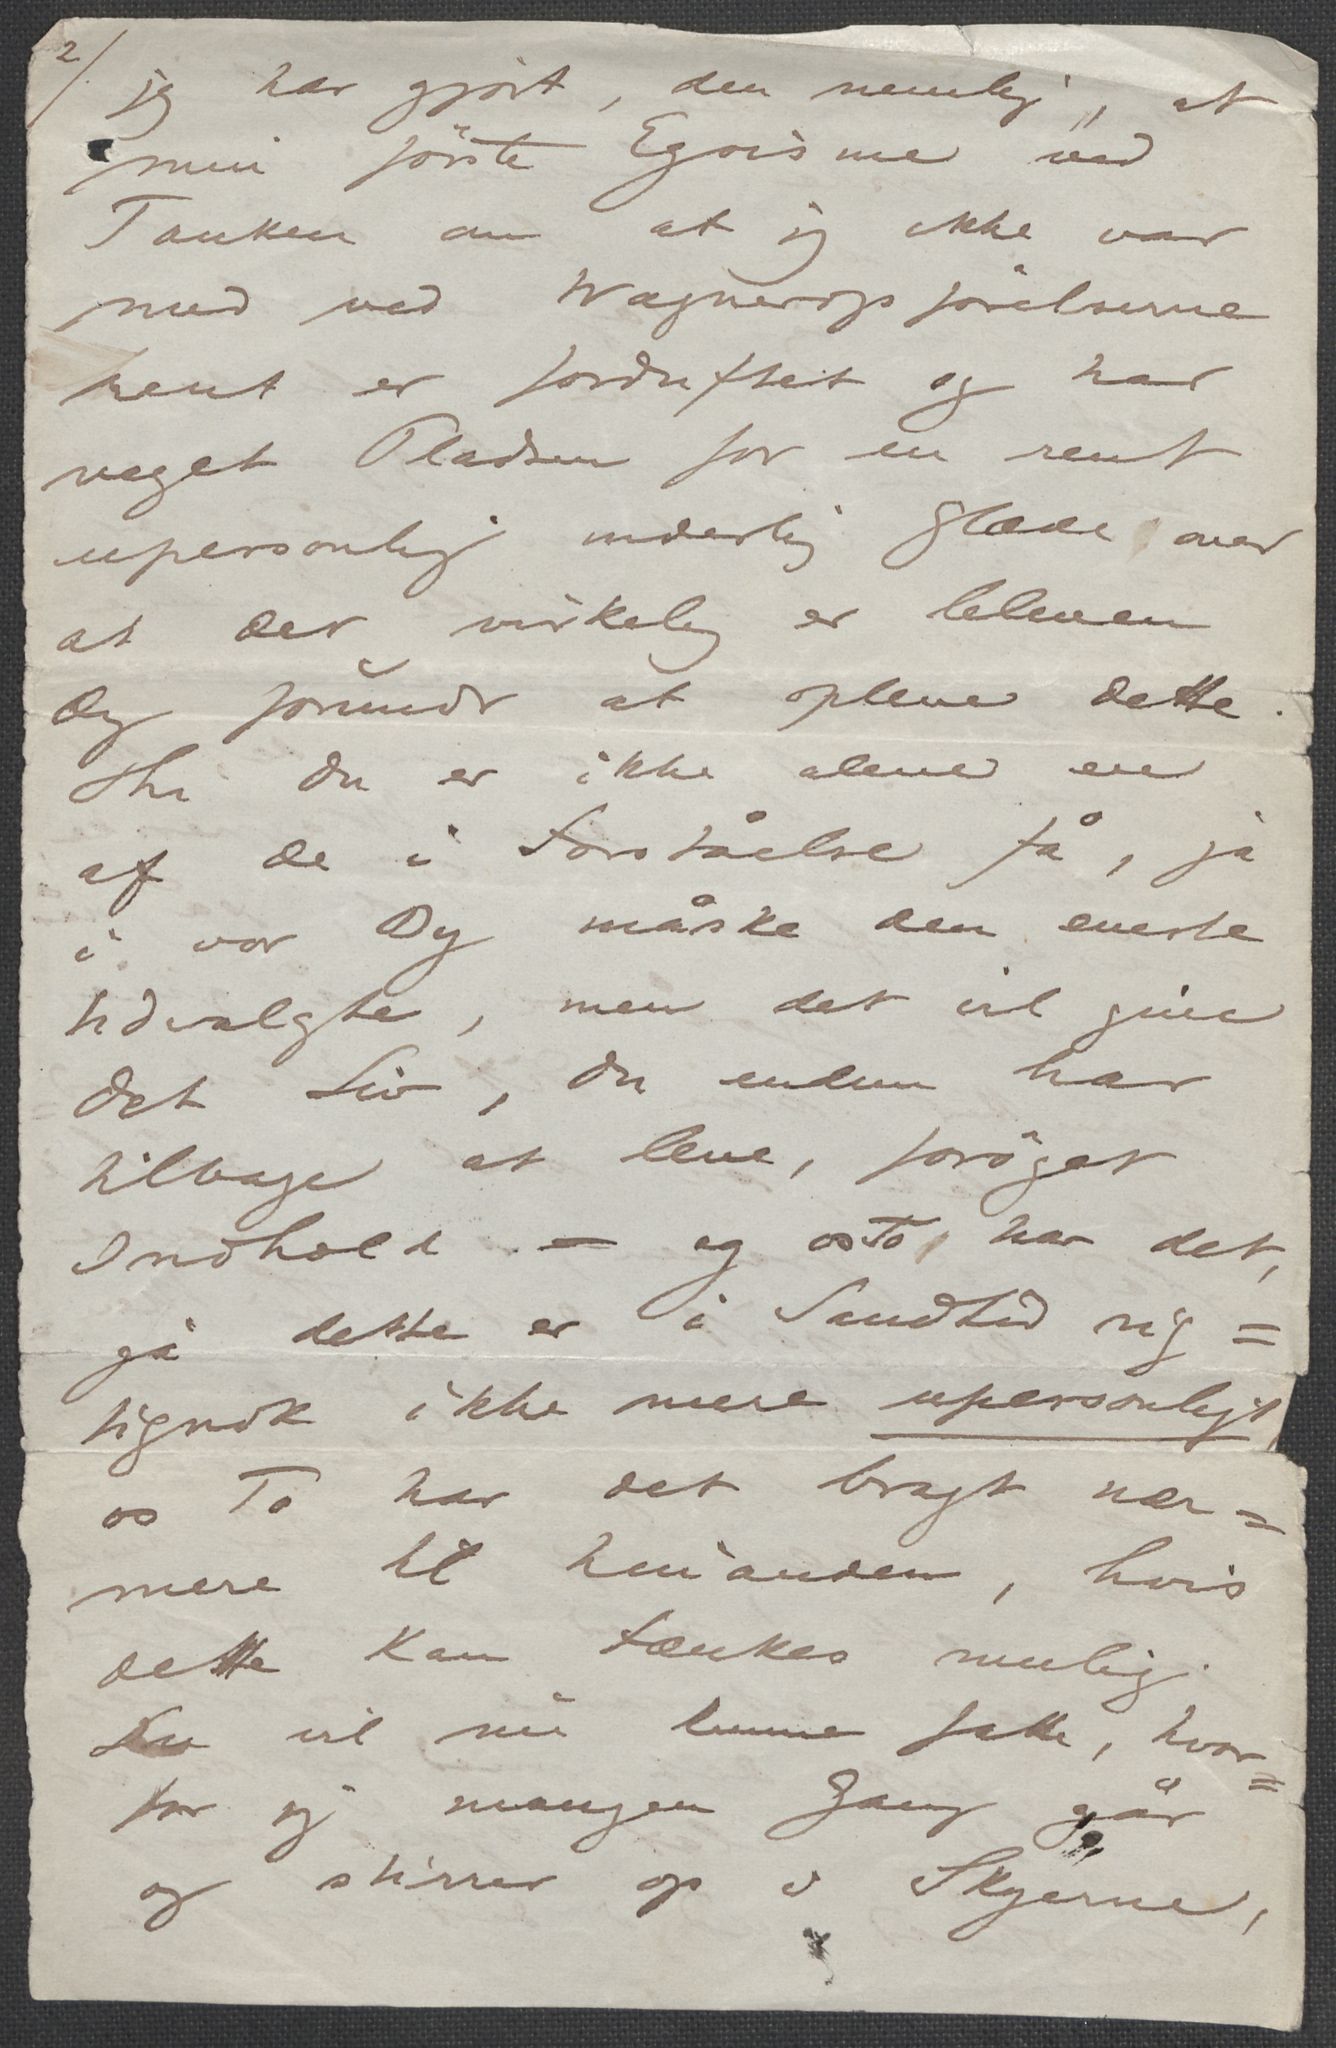 2/
jeg har gjort, den nemlig, at
min förste Egoisme ved
Tanken om at jeg ikke var
med ved Wagneropförelserne
rent er forduftet og har
veget Pladsen for en rent
upersonlig inderlig Glæde over
at der virkelig er bleven
Dig förundt at opleve dette.
Thi du er ikke alene en
af de i Forståelse få, ja
i vor By måske den eneste
Udvalgte, men det vil give
det Liv, du endnu har
tilbage at leve, foröget
Indhold – og os To, har det,
ja dette er i Sandhed rig=
tignok ikke mere upersonligt,
os To har det bragt nær=
mere til hinanden, hvis
dette kan tænkes mulig.
Du vil nu kunne fatte, hvor=
for jeg mangen Gang går
og stirrer op i Skyerne,